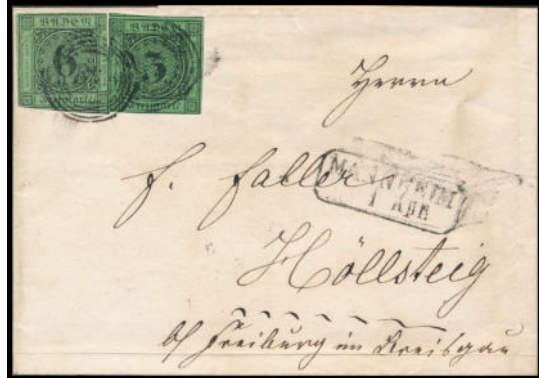 BADEN BADEN
6 3
Herrn
F. Faller
MANNHEIM
1 APR
Höllsteig
b/ Freiburg im Breisgau